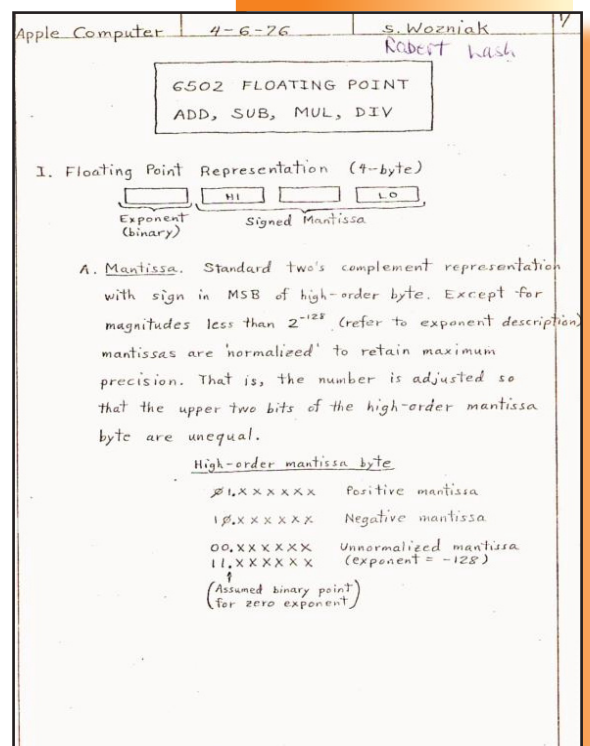 Apple Computer 4-6-76 S. Wozniak 1/
Robert Lash
6502 FLOATING POINT
ADD, SUB, MUL, DIV
I. Floating Point Representation (4-byte)
HI LO
Exponent (binary) Signed Mantissa
A. Mantissa. Standard two's complement representation
with sign in MSB of high-order byte. Except for
magnitudes less than 2⁻¹²⁸ (refer to exponent description)
mantissas are 'normalized' to retain maximum
precision. That is, the number is adjusted so
that the upper two bits of the high-order mantissa
byte are unequal.
High-order mantissa byte
Ø1.XXXXXX Positive mantissa
1Ø.XXXXXX Negative mantissa
00.XXXXXX Unnormalized mantissa
11.XXXXXX (exponent = -128)
↑
(Assumed binary point
for zero exponent)